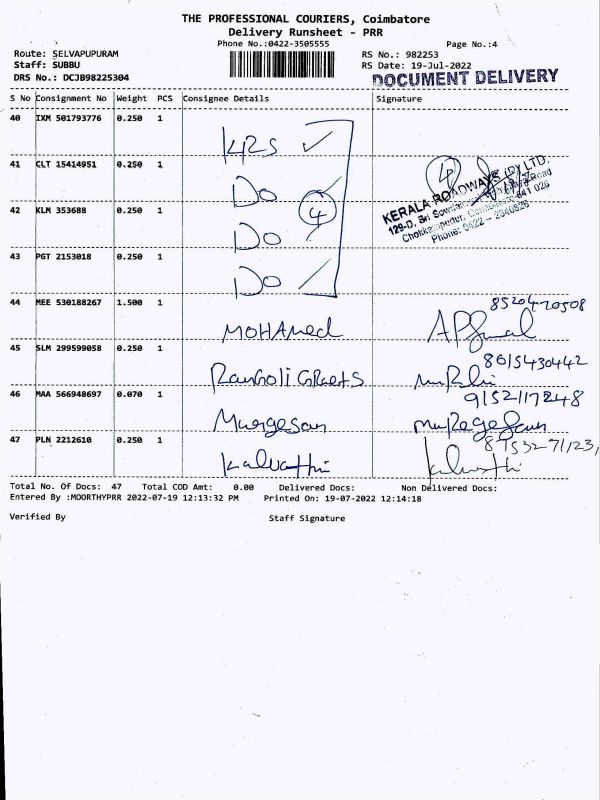 THE PROFESSIONAL COURIERS, Coimbatore
Delivery Runsheet - PRR
Phone No.:0422-3505555
Page No.:4
Route: SELVAPUPURAM
RS No.: 982253
Staff: SUBBU
RS Date: 19-Jul-2022
DRS No.: DCJB98225304
DOCUMENT DELIVERY
S No Consignment No Weight PCS Consignee Details Signature
40 IXM 501793776 0.250 1
KRS ✓
41 CLT 15414951 0.250 1
Do
4
KERALA ROADWAYS (P) LTD.
42 KLM 353688 0.250 1
Do
4
Phone: 0422 - 2340826
43 PGT 2153018 0.250 1
Do
44 MEE 530188267 1.500 1
8520470508
MOHAMed
45 SLM 299599058 0.250 1
8015430442
Rangoli Grafts
46 MAA 566948697 0.070 1
9152117248
Murgesan
47 PLN 2212610 0.250 1
Kalvathi
Total No. Of Docs: 47 Total COD Amt: 0.00 Delivered Docs: Non Delivered Docs:
Entered By :MOORTHYPRR 2022-07-19 12:13:32 PM Printed On: 19-07-2022 12:14:18
Verified By Staff Signature